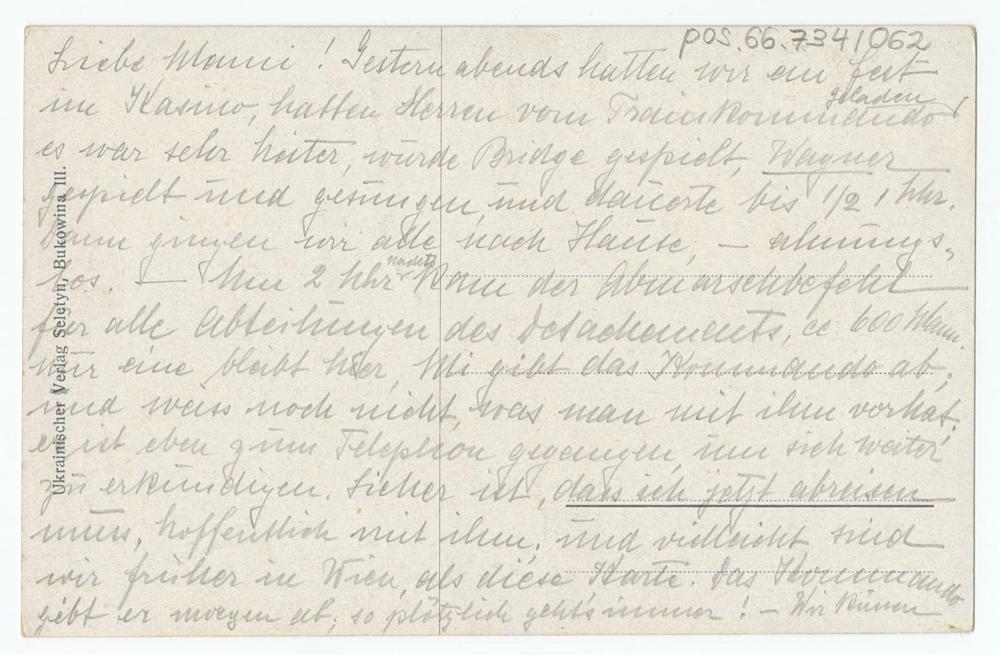 pos.66.7341062
Liebe Mami! Gestern abends hatten wir ein Fest
im Kasino, hatten Herren vom Trainkommando geladen
es war sehr heiter, wurde Bridge gespielt, Wagner
gespielt und gesungen, und dauerte bis 1/2 1 Uhr.
Dann gingen wir alle nach Hause, – ahnungs-
los. – Um 2 Uhr nachts kam der Abmarschbefehl
für alle Abteilungen des Detachements, cc. 600 Mann.
Nur eine bleibt hier, Mi gibt das Kommando ab,
und weiss noch nicht, was man mit ihm vorhat.
er ist eben zum Telephon gegangen, um sich weiter
zu erkundigen. Sicher ist, dass ich jetzt abreisen
muss, hoffentlich mit ihm; und vielleicht sind
wir früher in Wien, als diese Karte. Das Kommando
gibt er morgen ab; so plötzlich geht's immer! – Wir können
Ukrainischer Verlag Seletyn, Bukowina III.